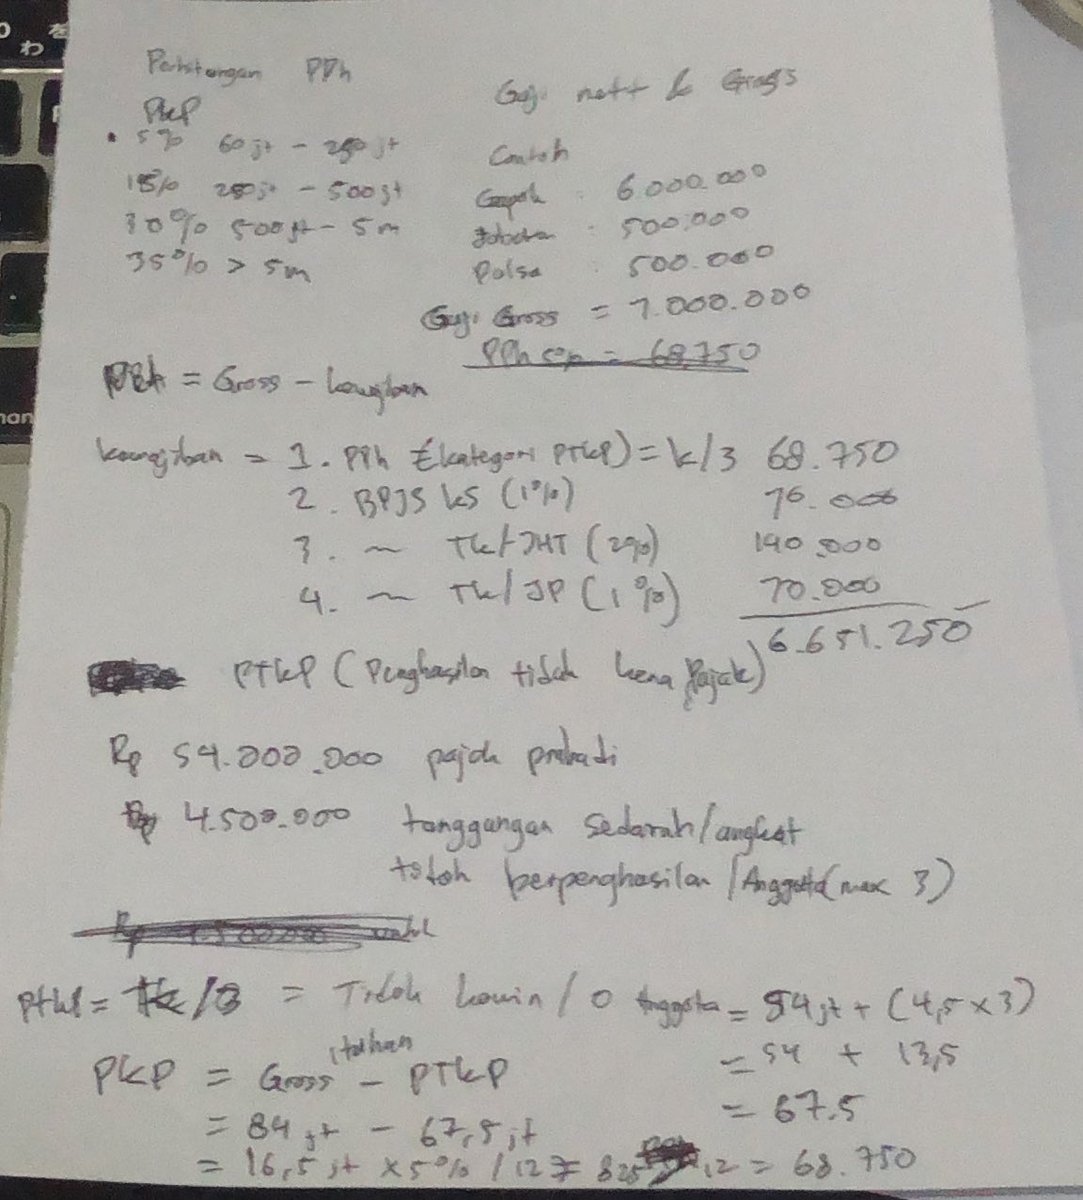 Perhitungan PPh
PKP
• 5% 60 jt - 250 jt
15% 250 jt - 500 jt
30% 500 jt - 5 m
35% > 5m
Gaji nett & Gross
Contoh
Gapok : 6.000.000
Jabatan : 500.000
Pulsa : 500.000
Gaji Gross = 7.000.000
PPh = 68.750
= Gross - kewajiban
kewajiban = 1. PPh (kategori PTKP) = k/3 68.750
2. BPJS KS (1%) 70.000
3. ~ TK/JHT (2%) 140.000
4. ~ TK/JP (1%) 70.000
6.651.250
PTKP (Penghasilan tidak kena Pajak)
Rp 54.000.000 pajak pribadi
Rp 4.500.000 tanggungan sedarah/angkat
tidak berpenghasilan /Anggota (max 3)
Rp 4.500.000
PTKP = TK/0 = Tidak kawin / 0 Anggota = 54 jt + (4,5 x 3)
= 54 + 13,5
= 67.5
PKP = Gross itahun - PTKP
= 84 jt - 67,5 jt
= 16,5 jt x 5% / 12 = 825 12 = 68.750
を
わ